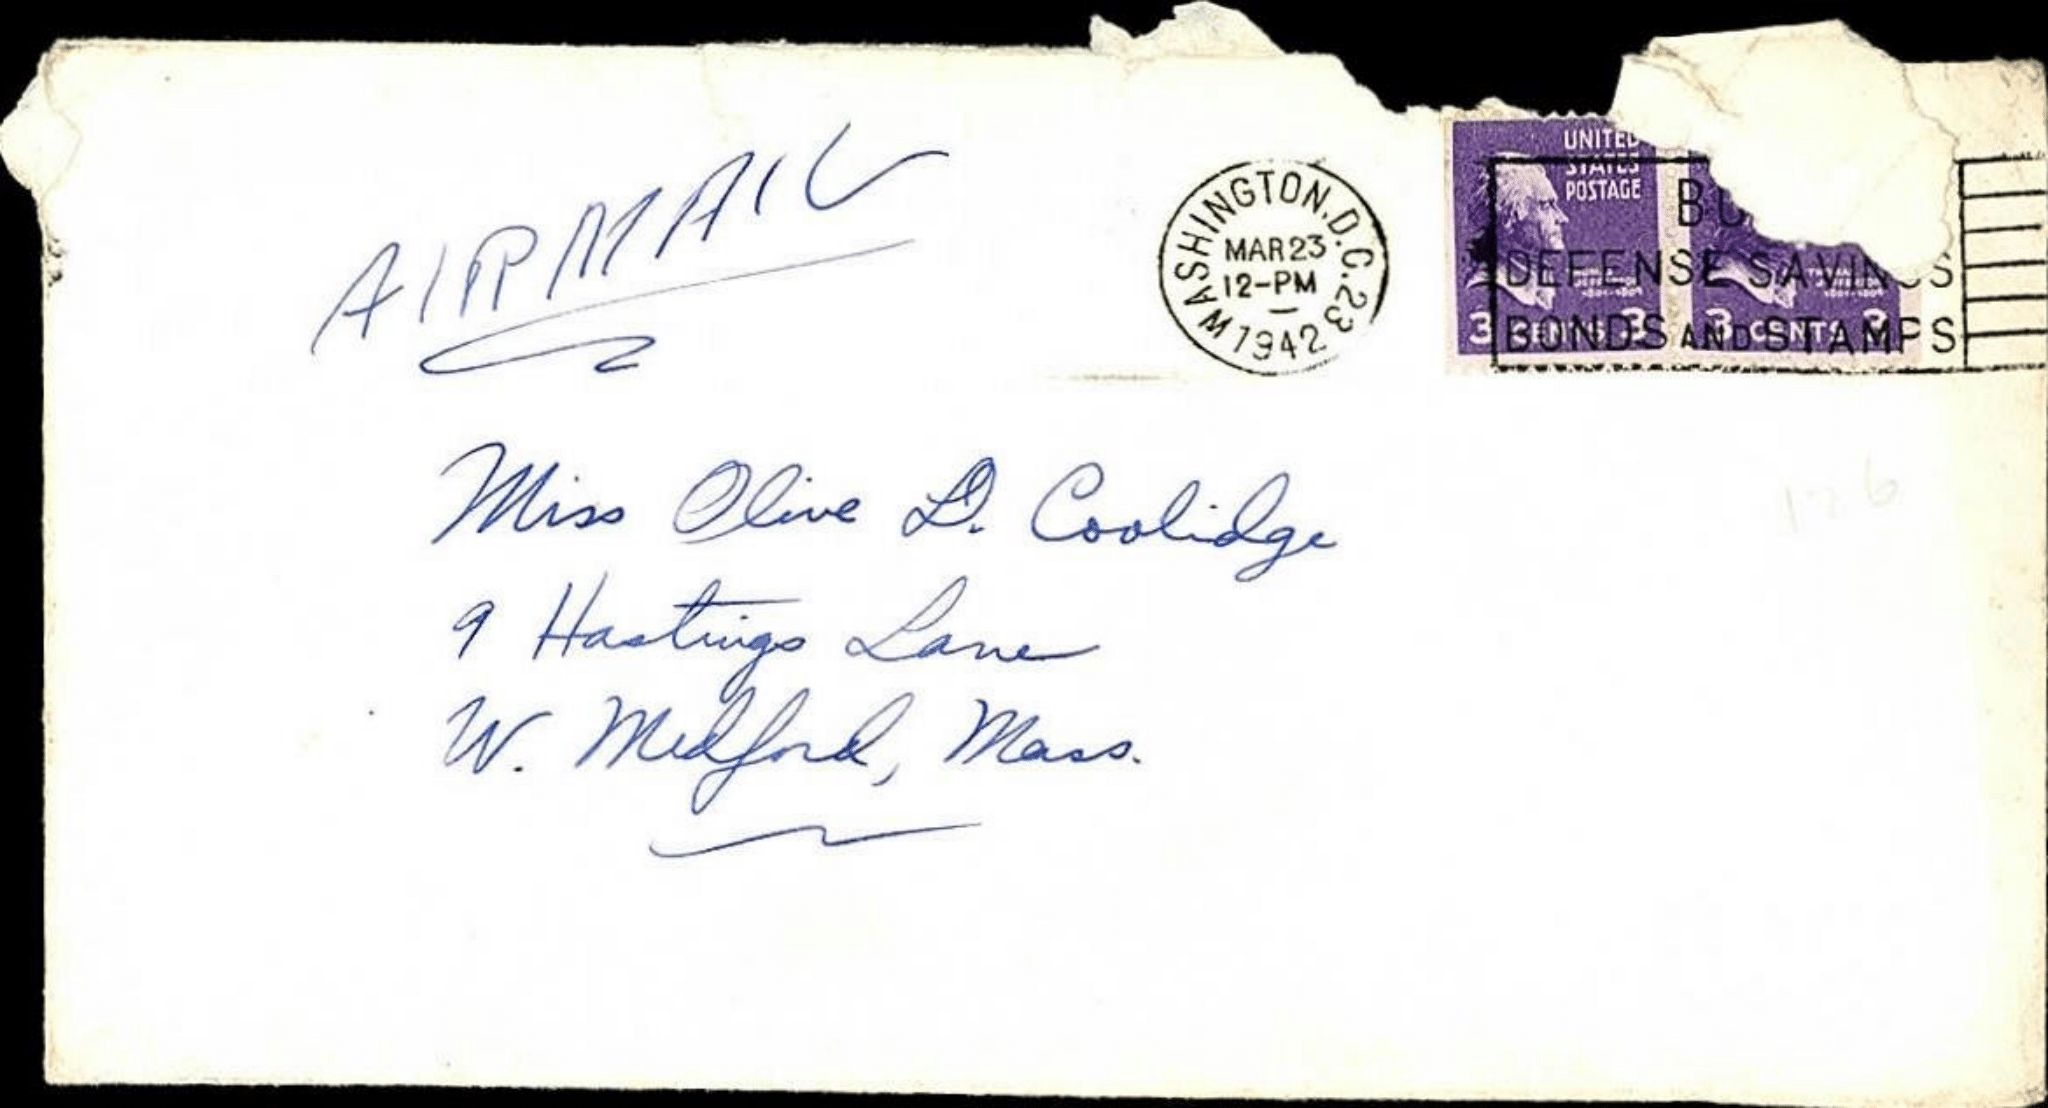 AIRMAIL
WASHINGTON, D.C. 23
MAR 23
12-PM
1942
UNITED
STATES
POSTAGE
3 CENTS 3
3 CENTS 3
DEFENSE SAVINGS
BONDS AND STAMPS
Miss Olive D. Coolidge
126
9 Hastings Lane
W. Medford, Mass.